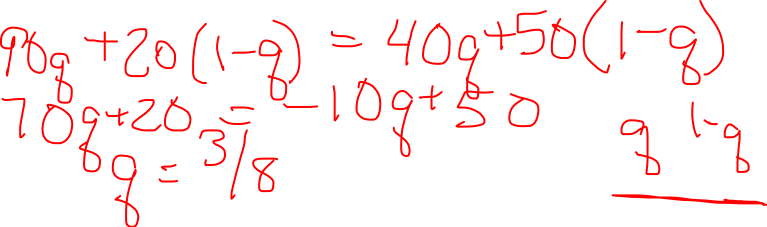 90q + 20(1-q) = 40q + 50(1-q)
70q + 20 = -10q + 50
q = 3/8
q 1-q